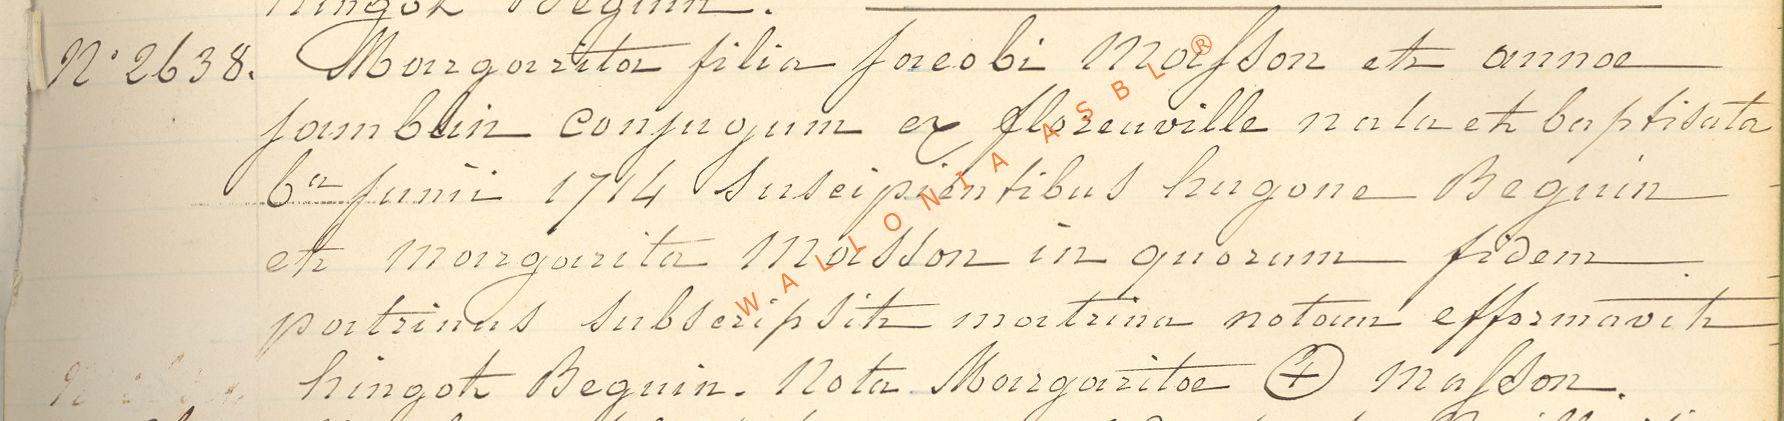 hingot Beguin.
N° 2638. Margarita filia Jacobi Masson et annae
jamblin conjugum ex florenville nata et baptisata
6a junii 1714 suscipientibus hugone Beguin
et Margarita Masson in quorum fidem
patrinus subscripsit matrina notam efformavit
hingot Beguin. Nota Margaritae + Masson.
WALLONIA ASBL ®